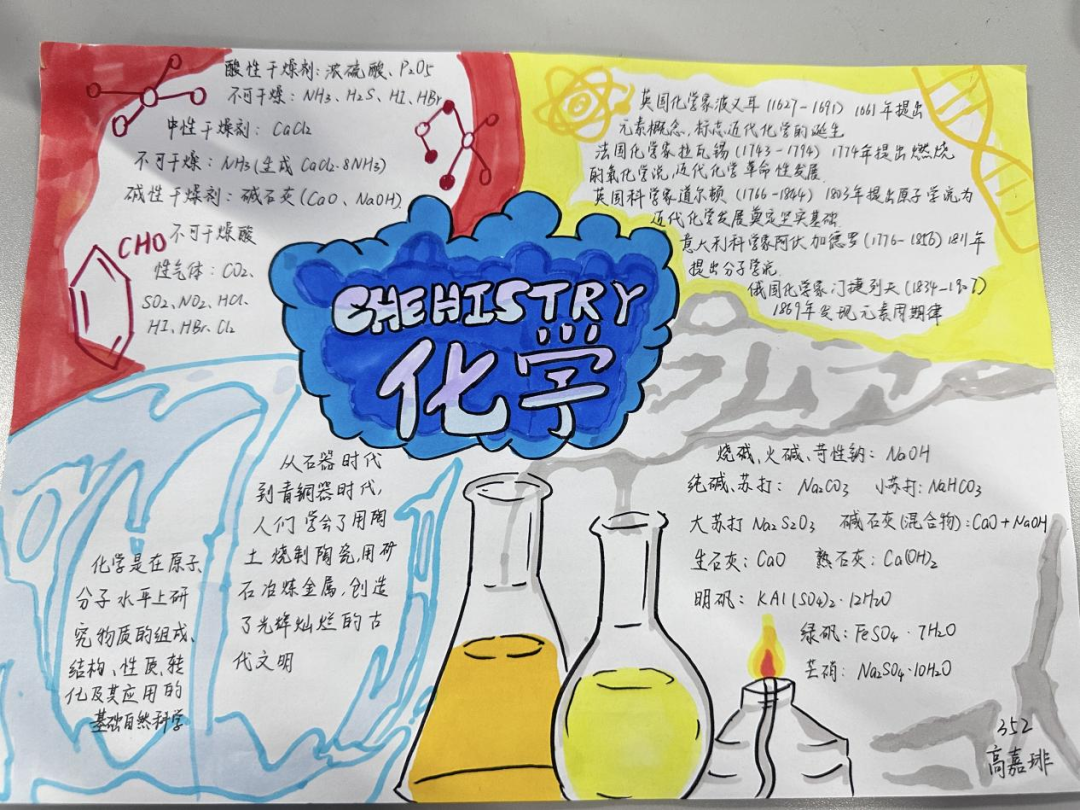 酸性干燥剂:浓硫酸、P₂O₅
不可干燥:NH₃、H₂S、HI、HBr
中性干燥剂:CaCl₂
不可干燥:NH₃(生成 CaCl₂·8NH₃)
碱性干燥剂:碱石灰(CaO、NaOH)
不可干燥酸
性气体:CO₂、
SO₂、NO₂、HCl、
HI、HBr、Cl₂
CHO
英国化学家波义耳(1627-1691)1661年提出
元素概念,标志近代化学的诞生
法国化学家拉瓦锡(1743-1794)1774年提出燃烧
的氧化学说,近代化学革命性发展
英国科学家道尔顿(1766-1844)1803年提出原子学说为
近代化学发展奠定坚实基础
意大利科学家阿伏加德罗(1776-1856)1811年
提出分子学说
俄国化学家门捷列夫(1834-1907)
1869年发现元素周期律
CHEMISTRY
化学
从石器时代
到青铜器时代,
人们学会了用陶
土烧制陶瓷,用矿
石冶炼金属,创造
了光辉灿烂的古
代文明
化学是在原子、
分子水平上研
究物质的组成、
结构、性质、转
化及其应用的
基础自然科学
烧碱、火碱、苛性钠:NaOH
纯碱、苏打:Na₂CO₃ 小苏打:NaHCO₃
大苏打 Na₂S₂O₃ 碱石灰(混合物):CaO+NaOH
生石灰:CaO 熟石灰:Ca(OH)₂
明矾:KAl(SO₄)₂·12H₂O
绿矾:FeSO₄·7H₂O
芒硝:Na₂SO₄·10H₂O
352
高嘉琲